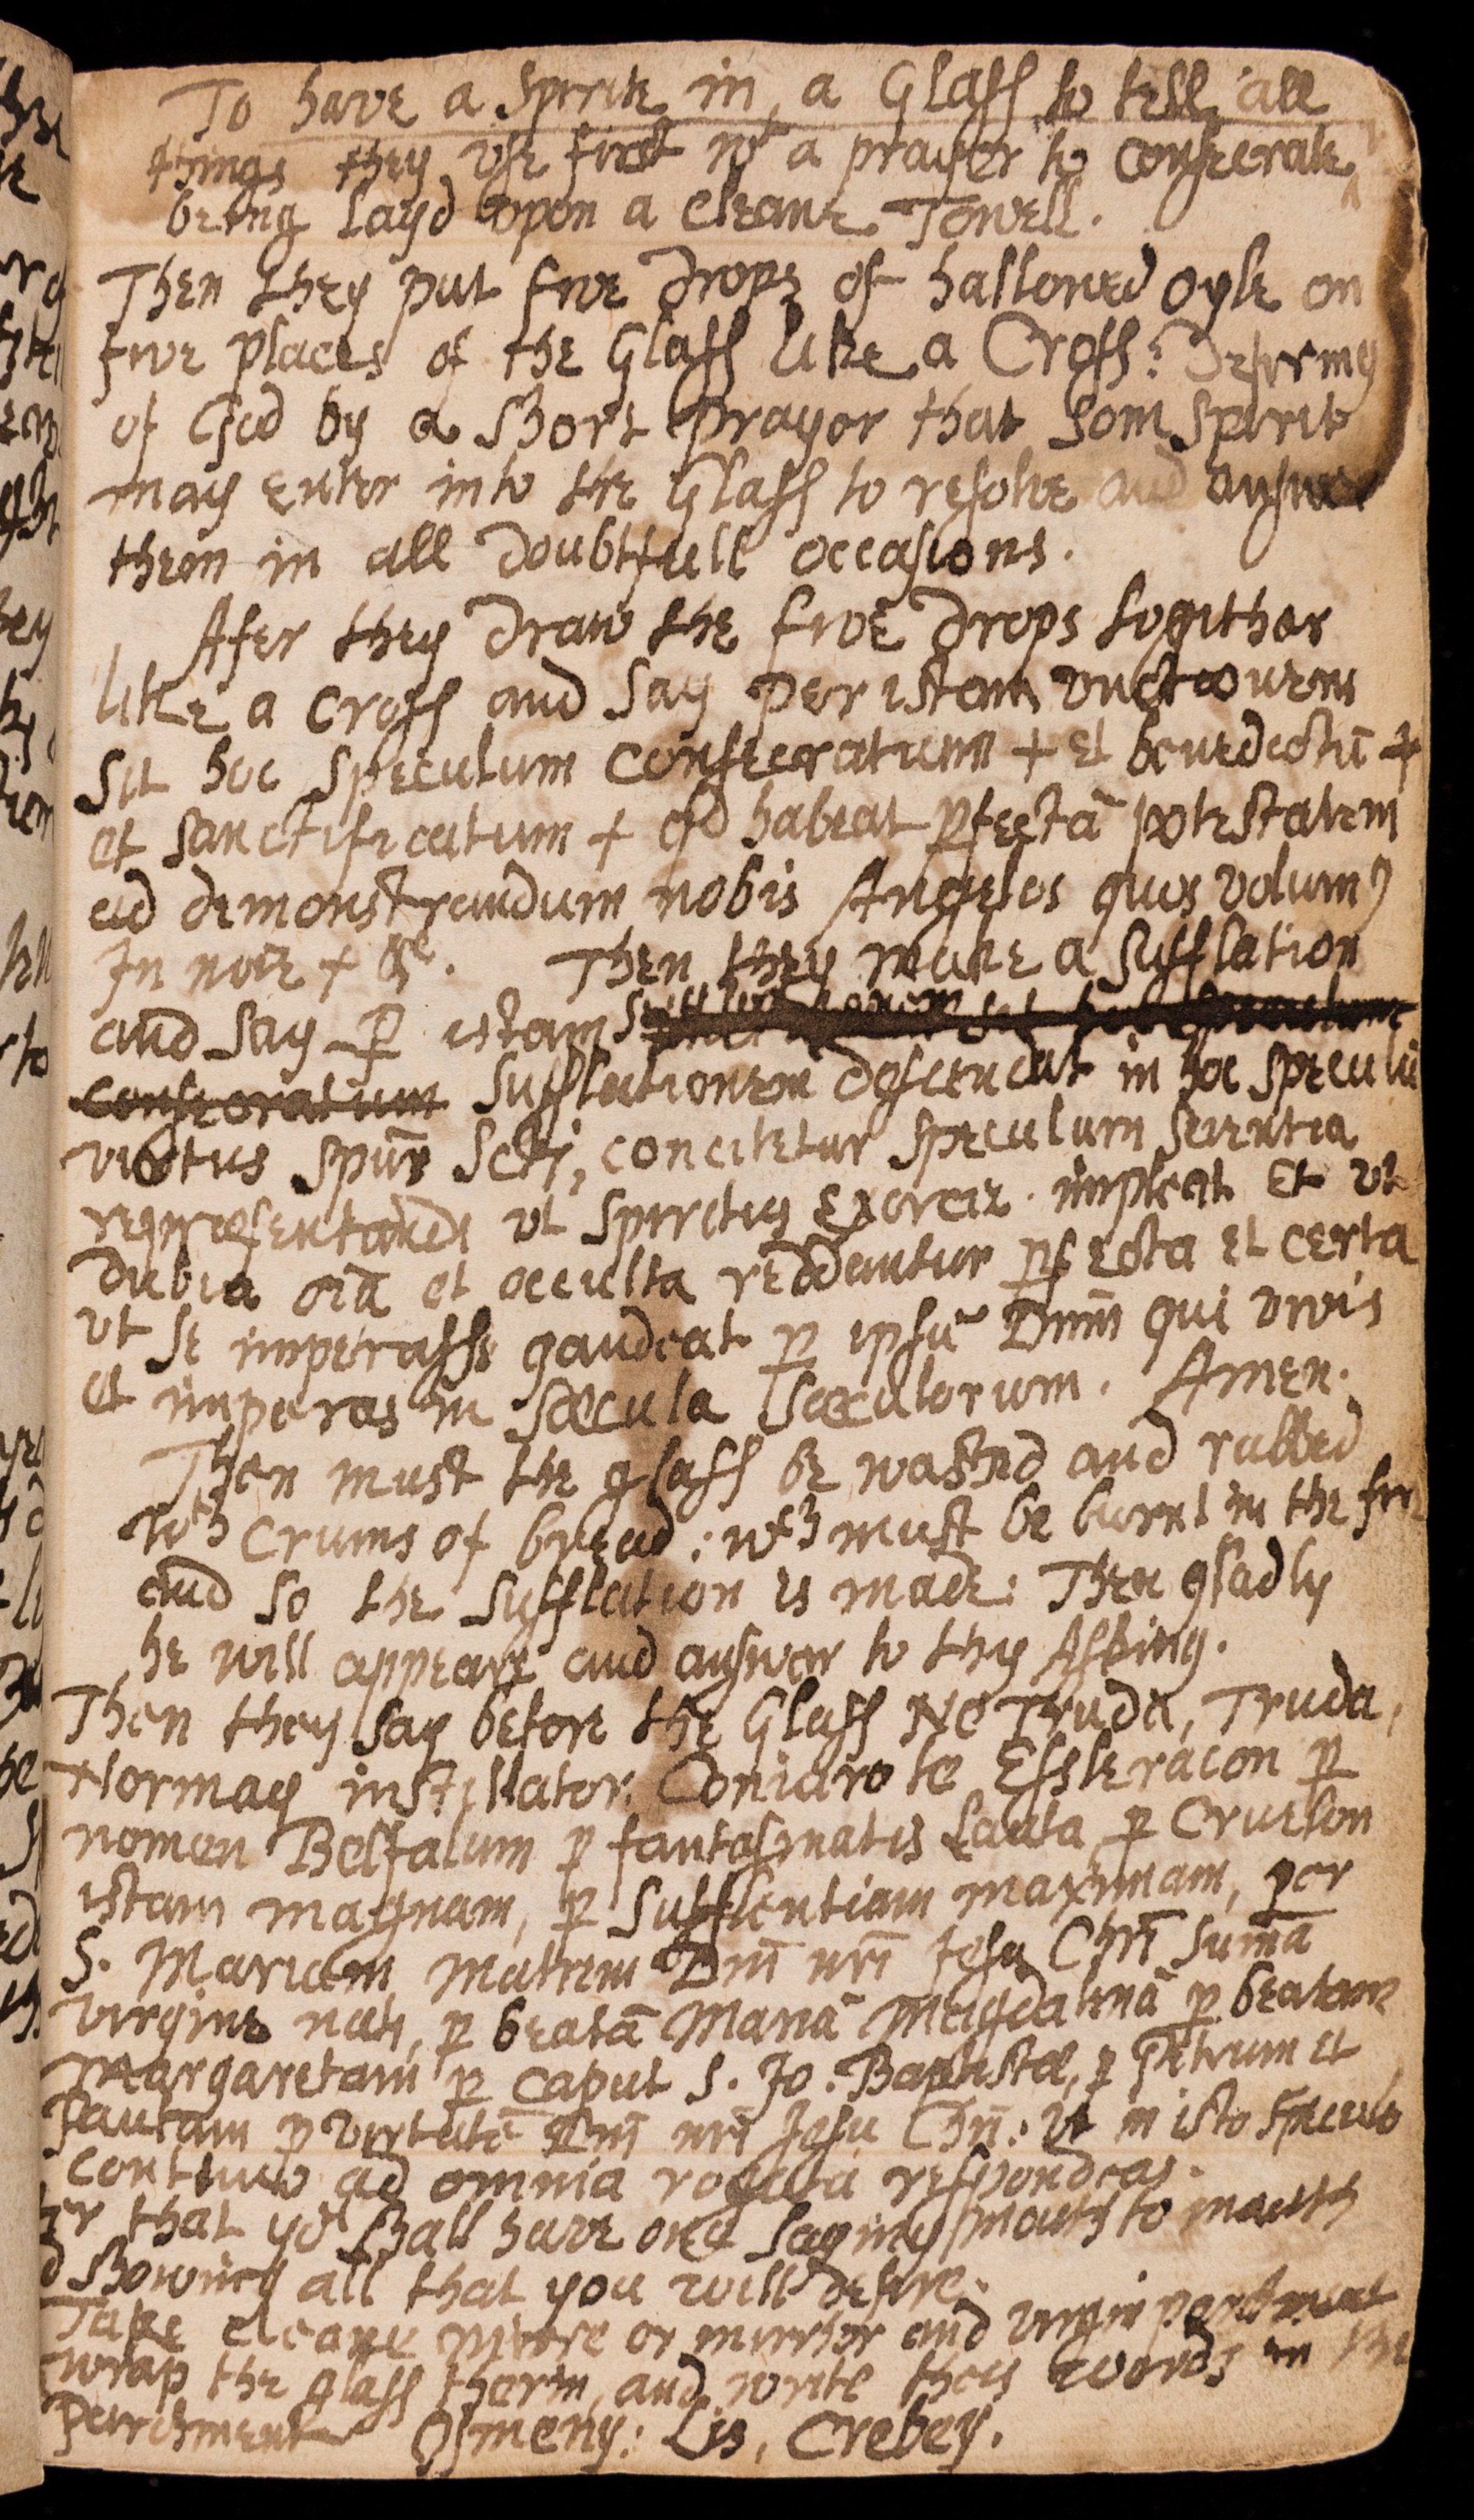 To have a Spirite in a Glass to tell all
things they use first wt a prayer to consecrate
being layd upon a cleane Towell.
Then they put five drops of hallowed oyle on
five places of the Glass like a Cross: Desiring
of God by a short prayer that som Spirit
may enter into the Glass to resolve and answer
them in all doubtfull occasions.
Afer they draw the five drops togither
like a cross and say per istam unctionem
Sit hoc speculum consecratum + et benedictū +
et sanctificatum + qd habeat pfectā potestatem
ad demonstrandum nobis Angelos quos volum9
In noīe + &c. Then they make a sufflation
and say p istam
consecratum sufflationem descendat in hoc speculū
virtus spūs Scti, concitetur speculum scientia
repræsentandi ut spiritus Exorciz. impleat Et ut
dubia oīa et occulta reddantur pfecta et certa
ut se imperasse gaudeat p ipsū Dnm̄ qui vivis
et imperas in sæcula sæculorum. Amen.
Then must the glass be washed and rubbed
wth crums of bread: wch must be burnt in the fire
and so the sufflation is made: Then gladly
he will appeare and answer to thy Asking.
Then they say before the Glass Ne Truda, Truda,
Hormay instillator. Coniuro te Essleracon p
nomen Belfalum p fantasmatis p Cruelon
istam magnam, p sufficientiam maximam, per
S. Mariam Matrem Dnī nrī Jesu Chrī sumā
virgine nati, p beatā Mariā Magdalenā p beatam
Margaretam p caput S. Jo. Baptistæ, p Petrum et
Paulam p virtutē Dnī nrī Jesu Chrī: ut in isto speculo
continuo ad omnia rogata respondeas.
er that yo shall have one saying mouth to mouth
d showing all that you will desire.
Take cleane mirore or mirrhor and virgin parchment
wrap the glass therin, and write thes words in the
Parchment Osmeny: Lis, Crebey.